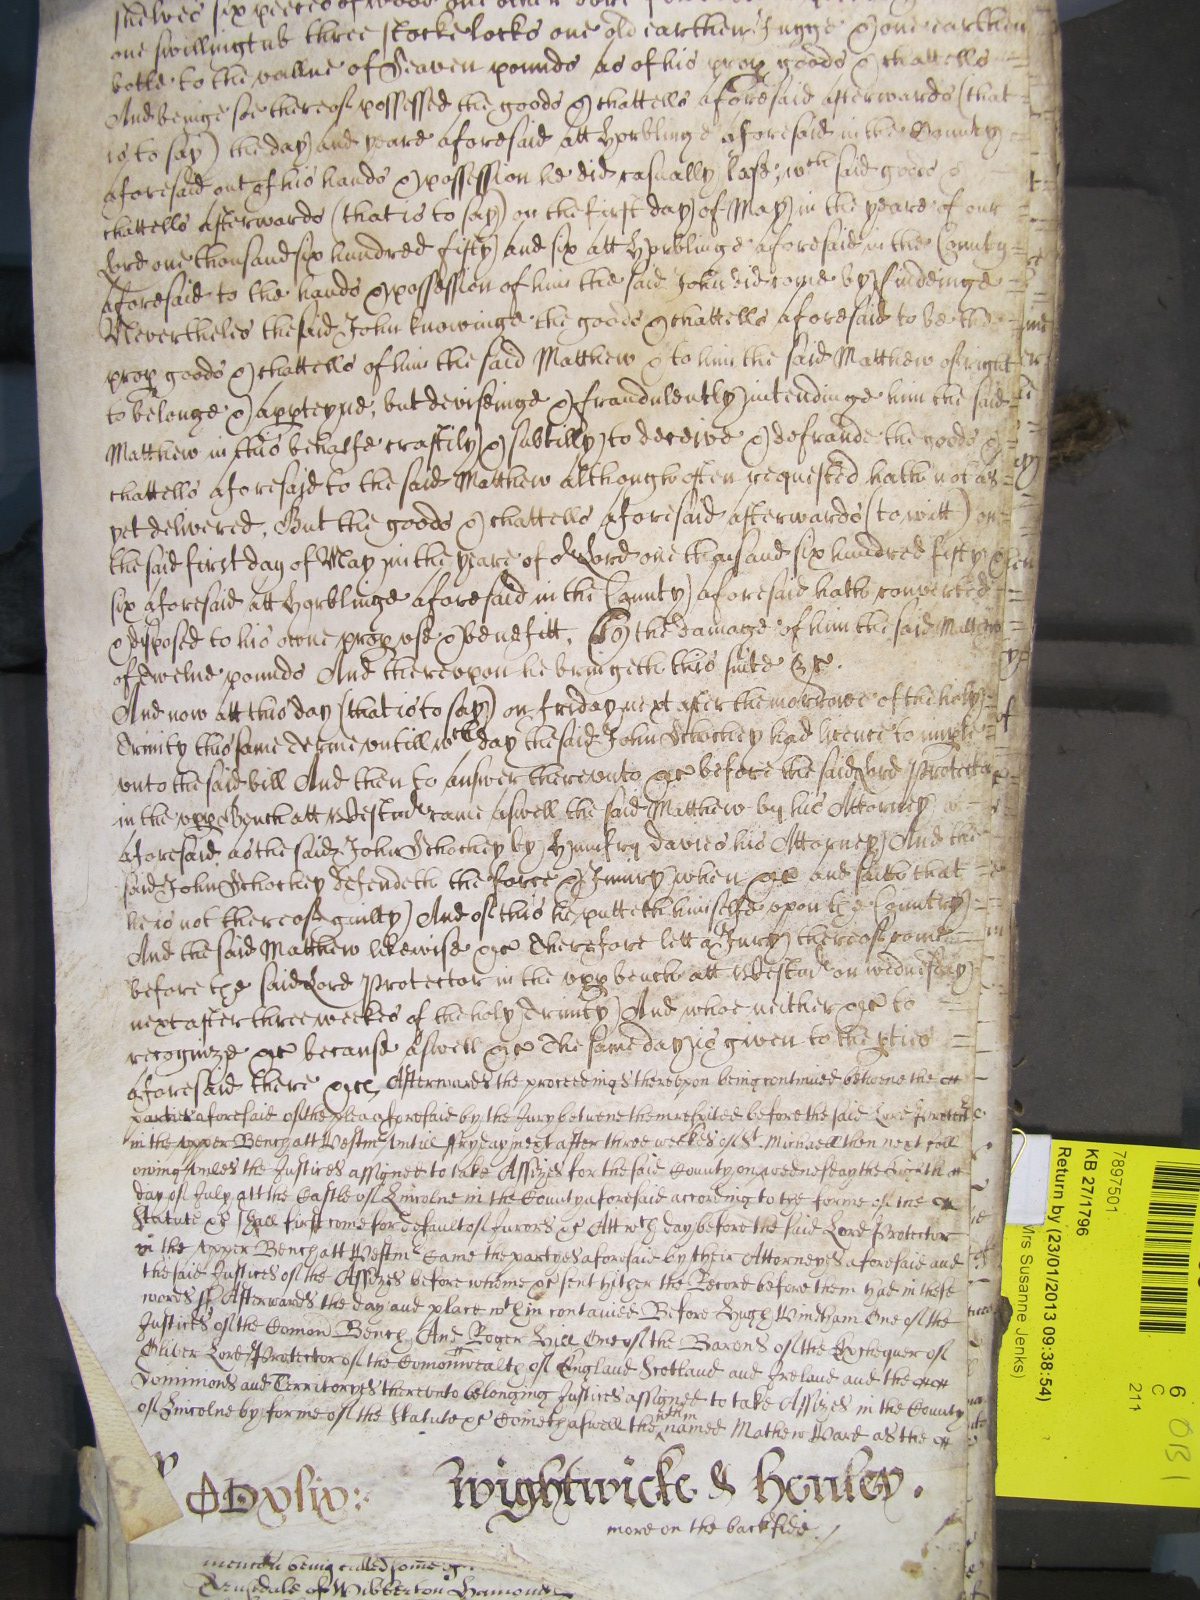 shelves six peeces of wood one other
one swillingtub three stocke locks one old earthen Jugge & one earthen
botle to the vallue of seaven pounds as of his prop goods & chattells
And beinge soe thereof possessed the goods & chattells aforesaid afterwards (that
is to say) the day and yeare aforesaid att Horblinge aforesaid in the County
aforesaid out of his hands & possession he did casually lose, wch said goods &
chattells afterwards (that is to say) on the first day of May in the yeare of our
Lord one thousand six hundred fifty and six att Horblinge aforesaid in the County
aforesaid to the hands & possession of him the said John did come by findeinge
Nevertheles the said John knowinge the goods & chattells aforesaid to be the
prop goods & chattells of him the said Matthew & to him the said Matthew of right
to belonge & appteyne, but deviseinge & fraudulently intendinge him the said
Matthew in this behalfe craftily & subtilly to deceive & defraude the goods &
chattells aforesaid to the said Matthew although often requested hath not as
yet delivered, But the goods & chattells aforesaid afterwards (to witt) on
the said first day of May in the yeare of or Lord one thousand six hundred fifty
six aforesaid att Horblinge aforesaid in the County aforesaid hath converted
& disposed to his owne prop use & benefitt, To the damage of him the said Matthew
of twelve pounds And thereupon he bringeth this suite &c.
And now att this day (that is to say) on friday next after the morrowe of the holy
Trinity this same terme untill wch day the said John Schochey had licence to imple
unto the said bill And then to answer thereunto &c before the said Lord Protector
in the upp Bench att Westmr came aswell the said Matthew by his Attorney
aforesaid, as the said John Schochey by Humfry Davies his Attorney And the
said John Schochey defendeth the force & Iniury when &c and saith that
he is not thereof guilty And of this he putteth himselfe upon the Country
And the said Matthew likewise &c Therefore lett a Jury thereof come
before the said Lord Protector in the upp bench att Westmr on wednesday
next after three weekes of the holy Trinity And whoe neither &c to
recognize &c because aswell &c The same day is given to the pties
aforesaid there &c Afterwards the proceedings thereupon being continued betweene the
parties aforesaid of the plea aforesaid by the Jury betweene them respited before the said Lord Protector
in the upper Bench att Westmr untill ffryday next after three weekes of St. Michaell then next foll
owing unles the Justices assigned to take Assizes for the said County on wednesday the Eighth
day of July att the Castle of Lincolne in the County aforesaid according to the forme of the
Statute &c shall first come for default of Jurors &c Att wch day before the said Lord Protector
in the upper Bench att Westmr Came the partyes aforesaid by their Attorneyes aforesaid and
the said Justices of the Assizes before whome &c sent hither the Record before them had in these
words ss Afterwards the day and place wthin contained Before Hugh Windham One of the
Justices of the Comon Bench And Roger Hill One of the Barons of the Exchequer of
Oliver Lord Protector of the Comonwealth of England Scotland and Ireland and the
Dominions and Territoryes thereunto belonging Justices assigned to take Assizes in the County
of Lincolne by forme of the statute &c Cometh aswell the wthin named Mathew Ward as the
Wightwicke & Henley.
more on the backside./
being called come
of Wibberton
7897501
KB 27/1796
Return by (23/01/2013 09:38:54)
Mrs Susanne Jenks)
6
C
211